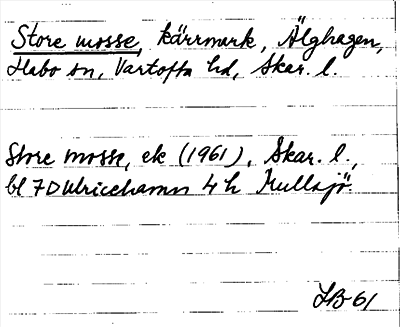 Store mosse, kärrmark, Älghagen,
Habo sn, Vartofta hd, Skar. l.
Store mosse, ek (1961), Skar. l.,
bl 7D Ulricehamn 4h Mullsjö.
IB-61